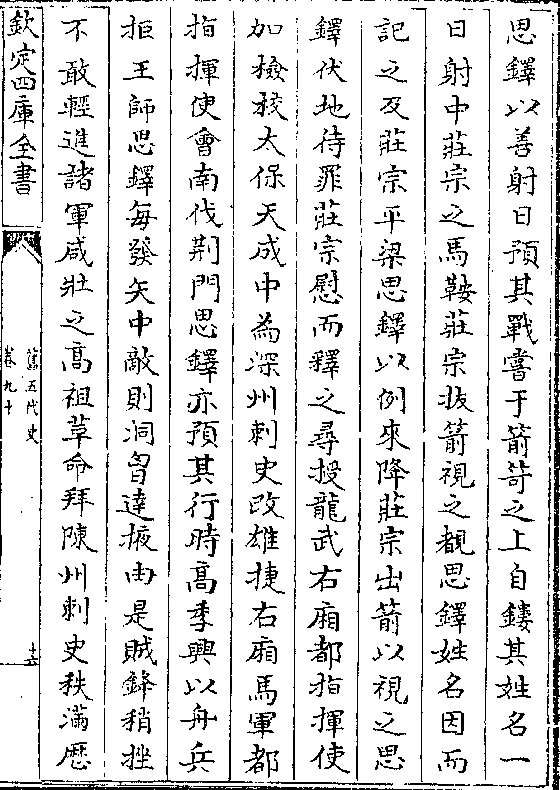 思鐸以善射日預其戰嘗于箭笴之上自鏤其姓名一
日射中莊宗之馬鞍莊宗拔箭視之覩思鐸姓名因而
記之及莊宗平梁思鐸以例來降莊宗出箭以視之思
鐸伏地待罪莊宗慰而釋之尋授龍武右廂都指揮使
加檢校太保天成中為深州刺史改雄捷右廂馬軍都
指揮使會南伐荆門思鐸亦預其行時髙季興以舟兵
拒王師思鐸每發矢中敵則洞胷達掖由是賊鋒稍挫
不敢輕進諸軍咸壯之髙祖革命拜陳州刺史秩滿歴
欽定四庫全書
舊五代史
卷九十
十六